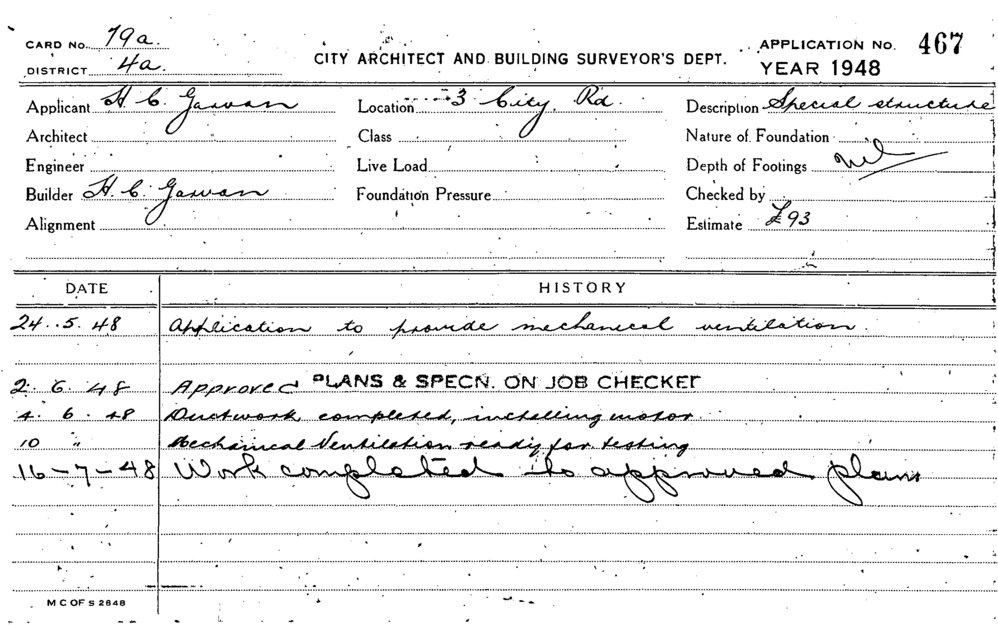 CARD No. 79a.
DISTRICT 4a.
CITY ARCHITECT AND BUILDING SURVEYOR'S DEPT.
APPLICATION No. 467
YEAR 1948
Applicant H. C. Garvan
Location 3 City Rd.
Description Special structure
Architect
Class
Nature of Foundation
Engineer
Live Load
Depth of Footings nil
Builder H. C. Garvan
Foundation Pressure
Checked by
Alignment
Estimate £93
DATE
HISTORY
24.5.48 Application to provide mechanical ventilation.
2.6.48 Approved PLANS & SPECN. ON JOB CHECKED
4.6.48 Ductwork completed, installing motor
10 " Mechanical Ventilation ready for testing
16-7-48 Work completed to approved plans
M C OF S 2848